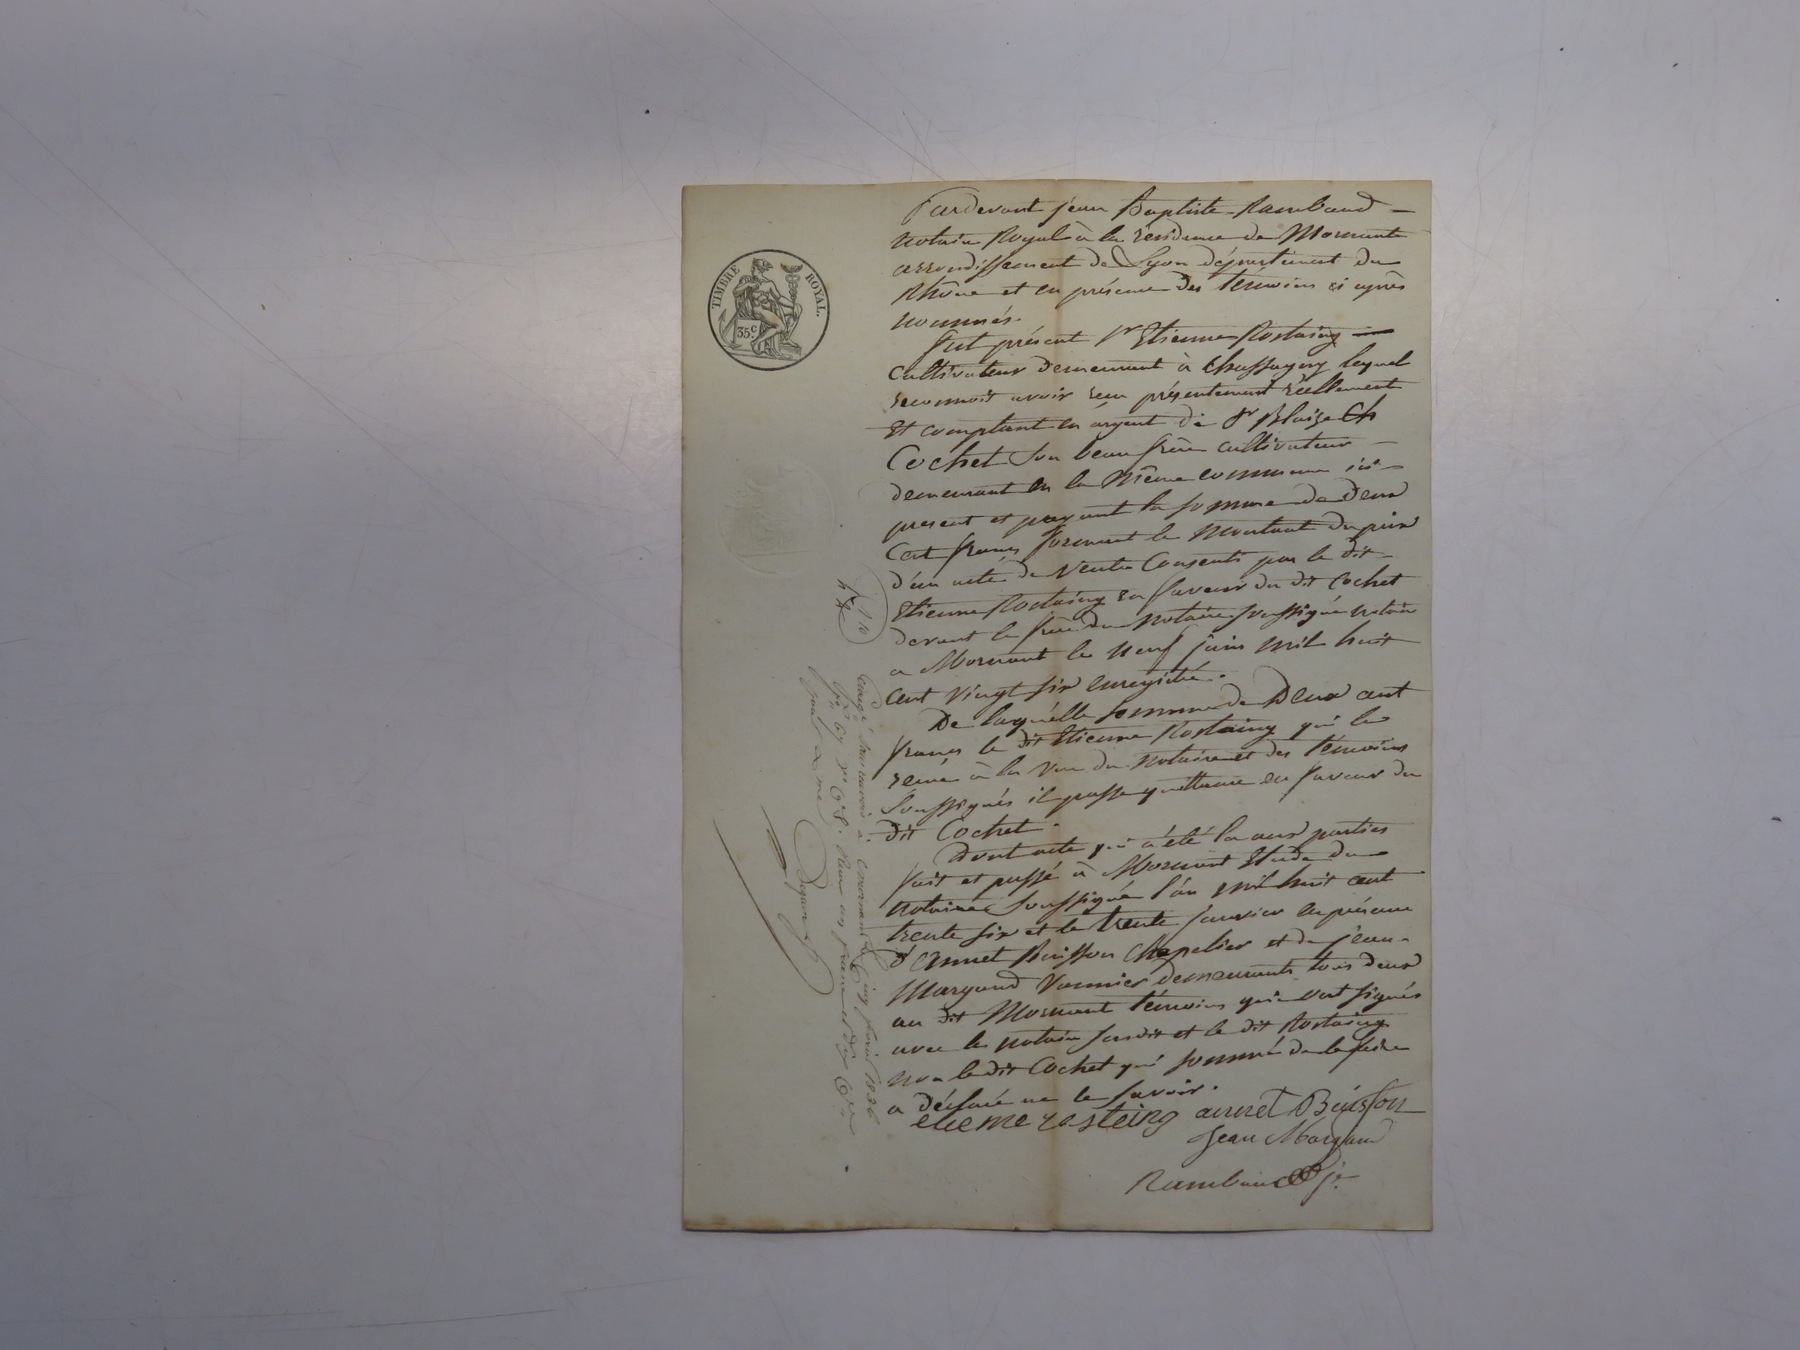 TIMBRE ROYAL.
35 c.
Pardevant jean Baptiste Rambaud
notaire Royal à la résidence de Mornant
arrondissement de Lyon département du
Rhône et en présence des témoins ci après
nommés.
fut présent Sr Etienne Rostaing
cultivateur demeurant à Chassagny lequel
reconnoit avoir reçu présentement réellement
Et comptant en argent de Sr Blaize Ch
Cochet son beau frère cultivateur
demeurant en la même commune ici
present et payant la somme de deux
Cent francs formant le montant du prix
d'un acte de vente consenti par le dit
Etienne Rostaing en faveur du dit Cochet
devant le frère du notaire soussigné notaire
a Mornant le neuf juin mil huit
cent vingt six enregistré.
De laquelle somme de Deux cent
francs le dit Etienne Rostaing qui le
retiré à la vue du notaire et des témoins
soussignés il passe quittance en faveur du
dit Cochet.
Dont acte qui a été lu aux parties
fait et passé à Mornant Etude du
notaire soussigné l'an mil huit cent
trente six et le trente janvier en présence
d'Annet Buisson Chapelier et de jean
Margand Vannier demeurants tous deux
au dit Mornant témoins qui ont signés
avec le notaire susdit et le dit Rostaing
non le dit Cochet qui sommé de le faire
a déclaré ne le savoir.
etieme rosteing annet Buisson
Jean Margand
Rambaud je
Enregé sans renvoi à Mornant le cinq février 1836
fo 67 ro Reçu un franc et dix cmes